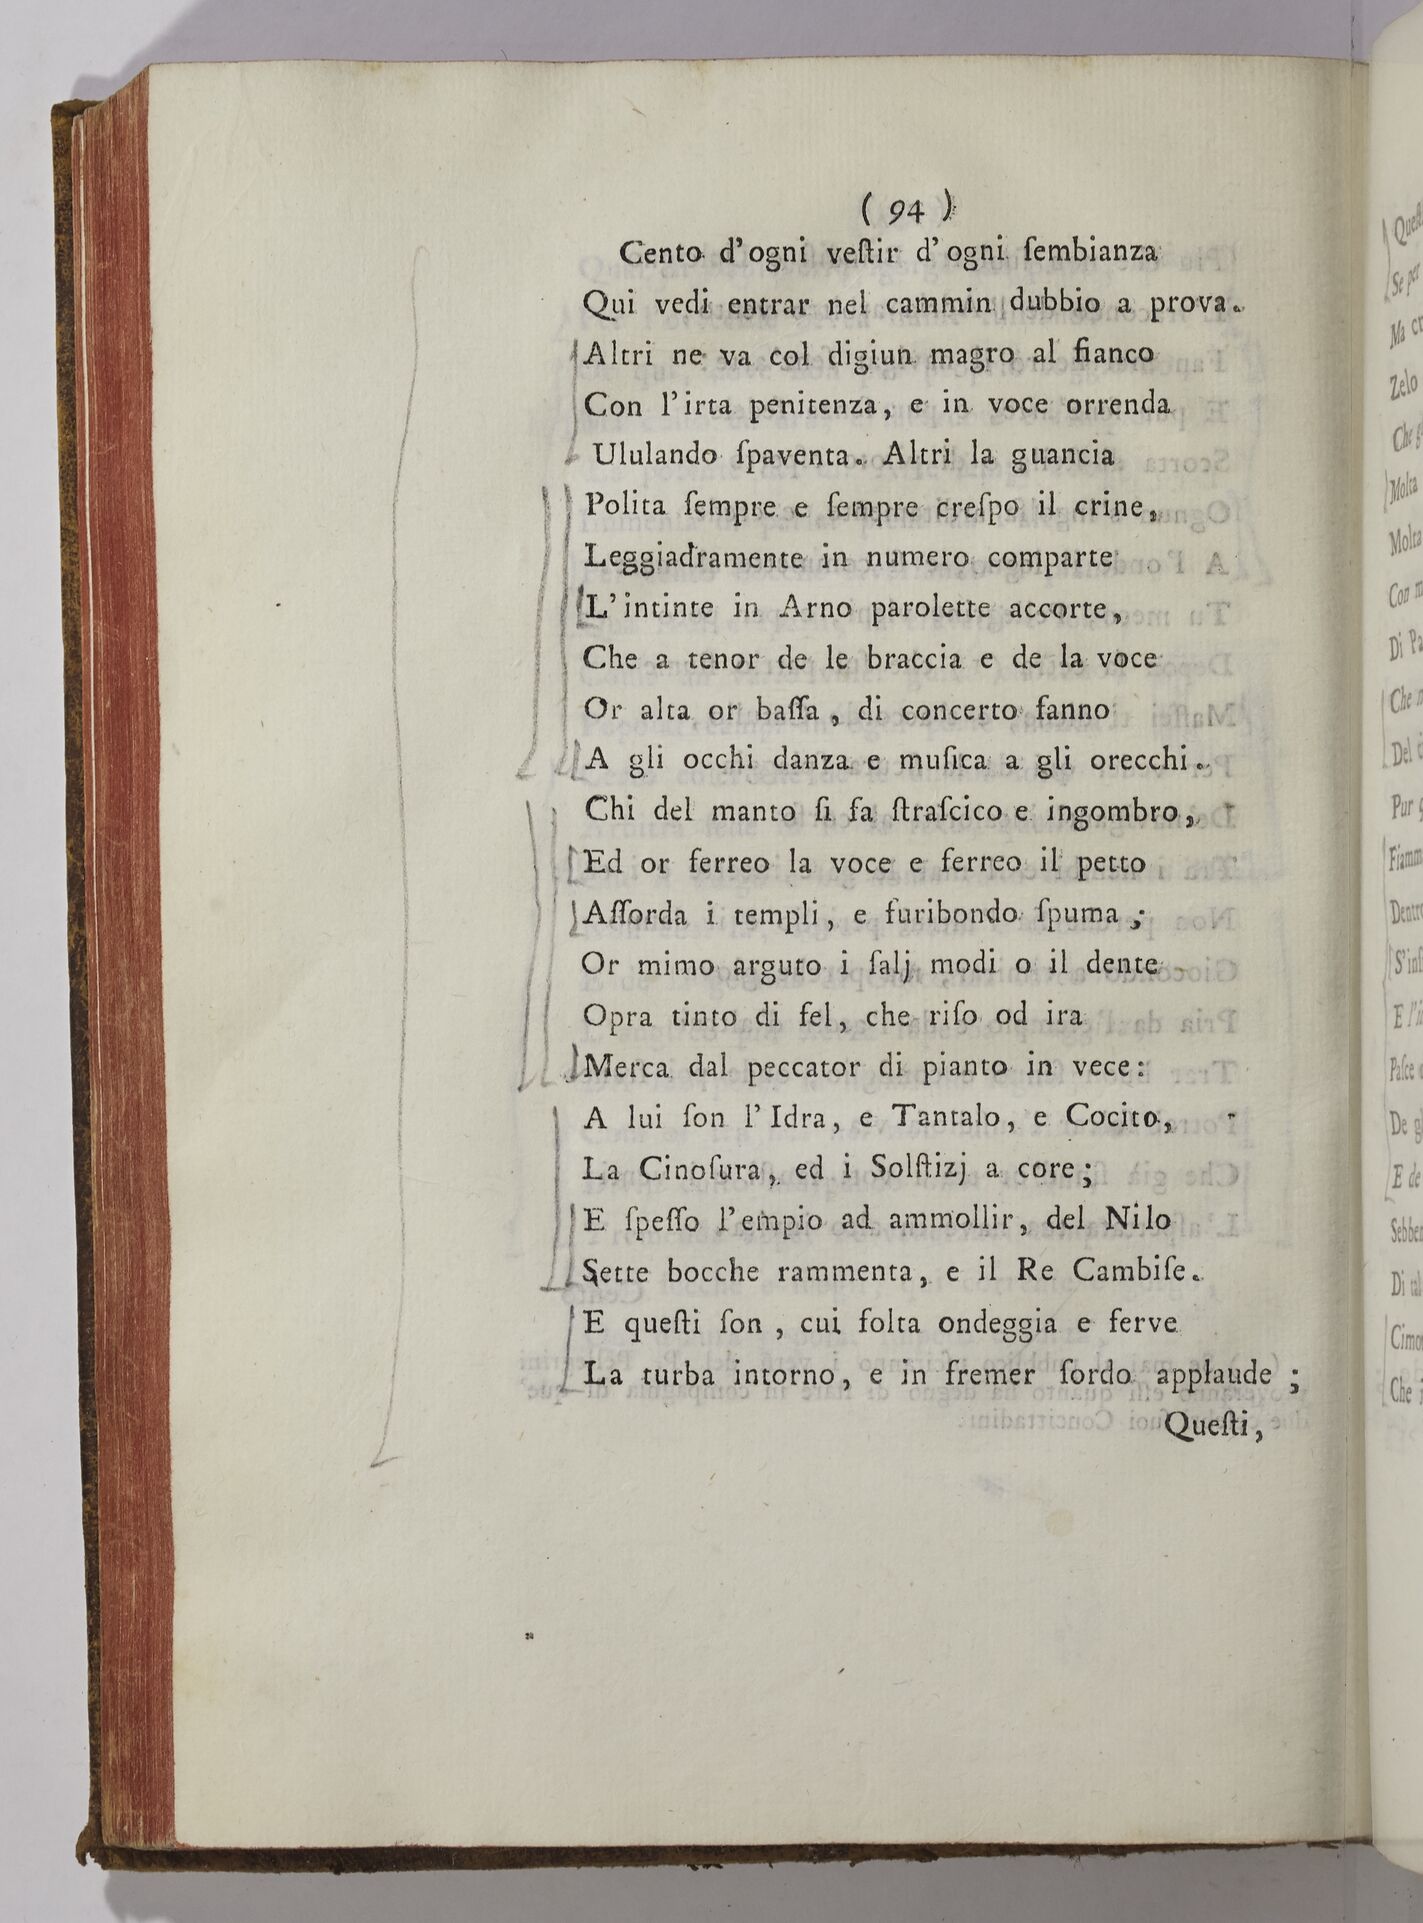 ( 94 )
Cento d'ogni veſtir d'ogni ſembianza
Qui vedi entrar nel cammin dubbio a prova.
Altri ne va col digiun magro al fianco
Con l'irta penitenza, e in voce orrenda
Ululando ſpaventa. Altri la guancia
Polita ſempre e ſempre creſpo il crine,
Leggiadramente in numero comparte
L'intinte in Arno parolette accorte,
Che a tenor de le braccia e de la voce
Or alta or baſſa, di concerto fanno
A gli occhi danza e muſica a gli orecchi.
Chi del manto ſi fa ſtraſcico e ingombro,
Ed or ferreo la voce e ferreo il petto
Aſſorda i templi, e furibondo ſpuma;
Or mimo arguto i ſalj modi o il dente
Opra tinto di fel, che riſo od ira
Merca dal peccator di pianto in vece:
A lui ſon l'Idra, e Tantalo, e Cocito,
La Cinoſura, ed i Solſtizj a core;
E ſpeſſo l'empio ad ammollir, del Nilo
Sette bocche rammenta, e il Re Cambiſe.
E queſti ſon, cui folta ondeggia e ferve
La turba intorno, e in fremer ſordo applaude;
Queſti,
Se per
Zelo
Molta
Molta
Di
Del
Pur
E
De
E de
Di
Che